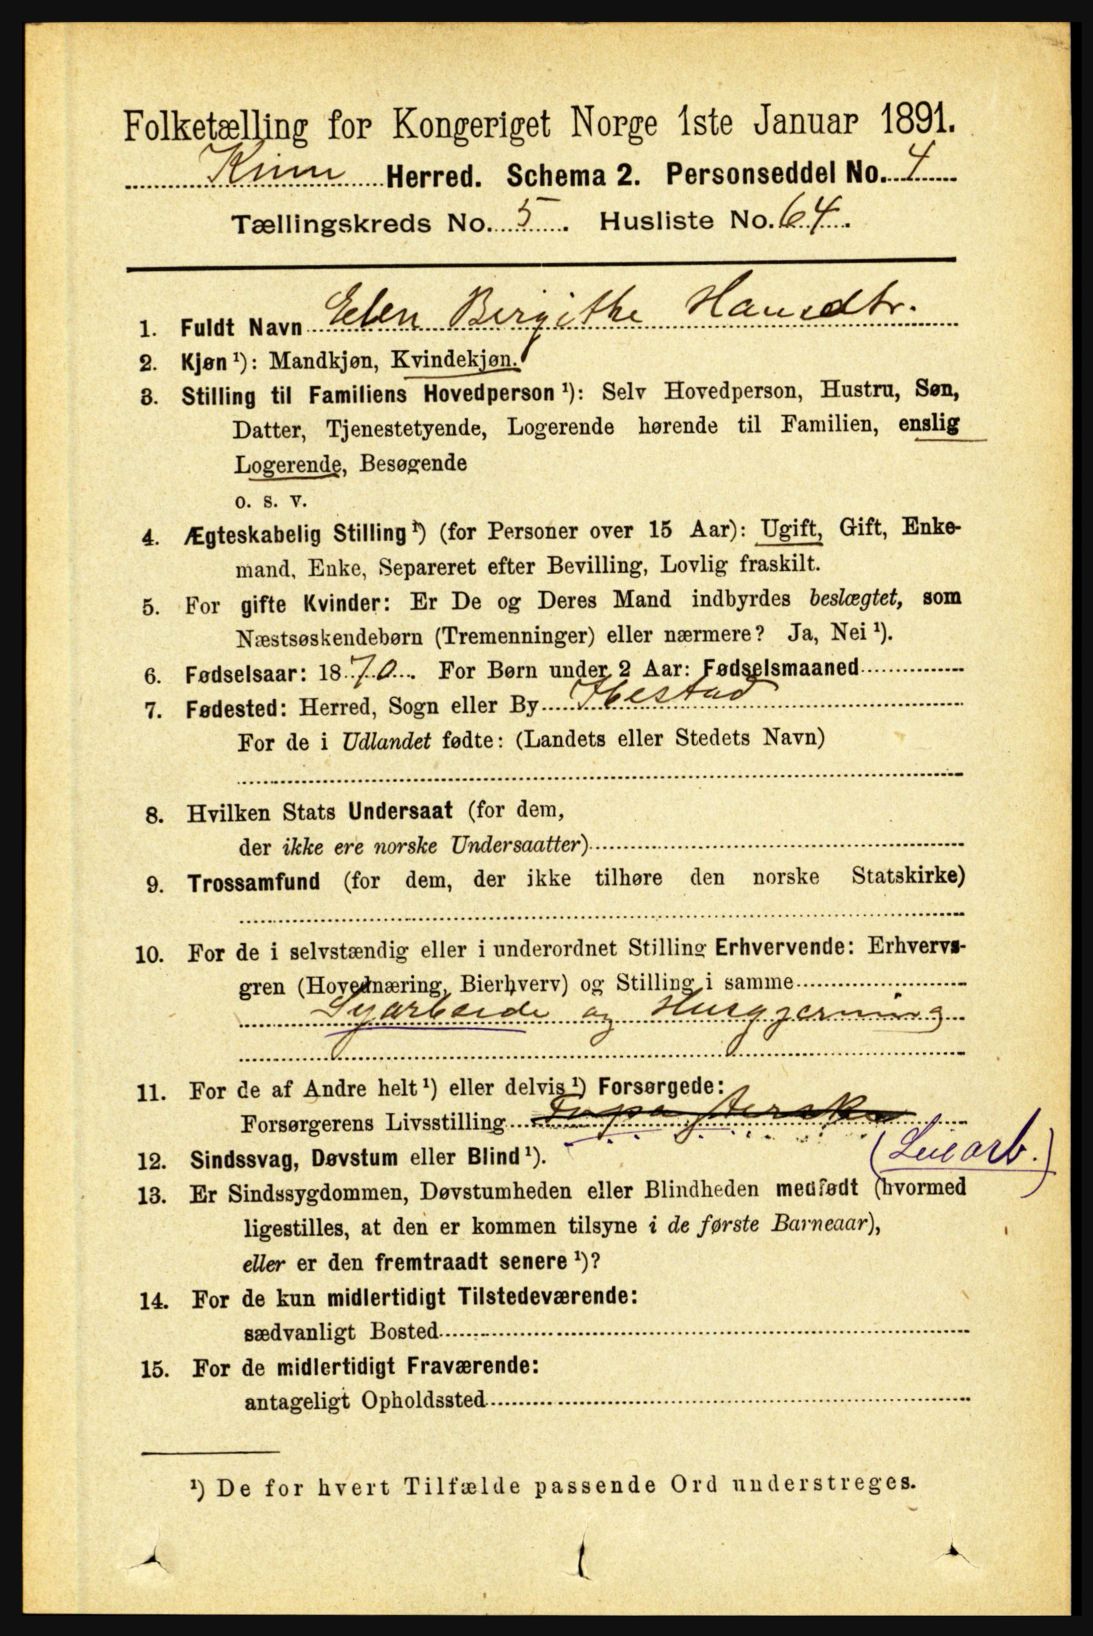 Folketælling for Kongeriget Norge 1ste Januar 1891.
Kinn Herred. Schema 2. Personseddel No. 4
Tællingskreds No. 5. Husliste No. 64.
1. Fuldt Navn Elen Birgithe Hansdtr.
2. Kjøn ¹): Mandkjøn, Kvindekjøn.
3. Stilling til Familiens Hovedperson ¹): Selv Hovedperson, Hustru, Søn,
Datter, Tjenestetyende, Logerende hørende til Familien, enslig
Logerende, Besøgende
o. s. v.
4. Ægteskabelig Stilling ¹) (for Personer over 15 Aar): Ugift, Gift, Enke-
mand, Enke, Separeret efter Bevilling, Lovlig fraskilt.
5. For gifte Kvinder: Er De og Deres Mand indbyrdes beslægtet, som
Næstsøskendebørn (Tremenninger) eller nærmere? Ja, Nei ¹).
6. Fødselsaar: 1870. For Børn under 2 Aar: Fødselsmaaned
7. Fødested: Herred, Sogn eller By
For de i Udlandet fødte: (Landets eller Stedets Navn)
8. Hvilken Stats Undersaat (for dem,
der ikke ere norske Undersaatter)
9. Trossamfund (for dem, der ikke tilhøre den norske Statskirke)
10. For de i selvstændig eller i underordnet Stilling Erhvervende: Erhvervs-
gren (Hovednæring, Bierhverv) og Stilling i samme
Syarbeide og Husgjerning
11. For de af Andre helt ¹) eller delvis ¹) Forsørgede:
Forsørgerens Livsstilling
(Leiearb.)
12. Sindssvag, Døvstum eller Blind ¹).
13. Er Sindssygdommen, Døvstumheden eller Blindheden medfødt (hvormed
ligestilles, at den er kommen tilsyne i de første Barneaar),
eller er den fremtraadt senere ¹)?
14. For de kun midlertidigt Tilstedeværende:
sædvanligt Bosted
15. For de midlertidigt Fraværende:
antageligt Opholdssted
¹) De for hvert Tilfælde passende Ord understreges.